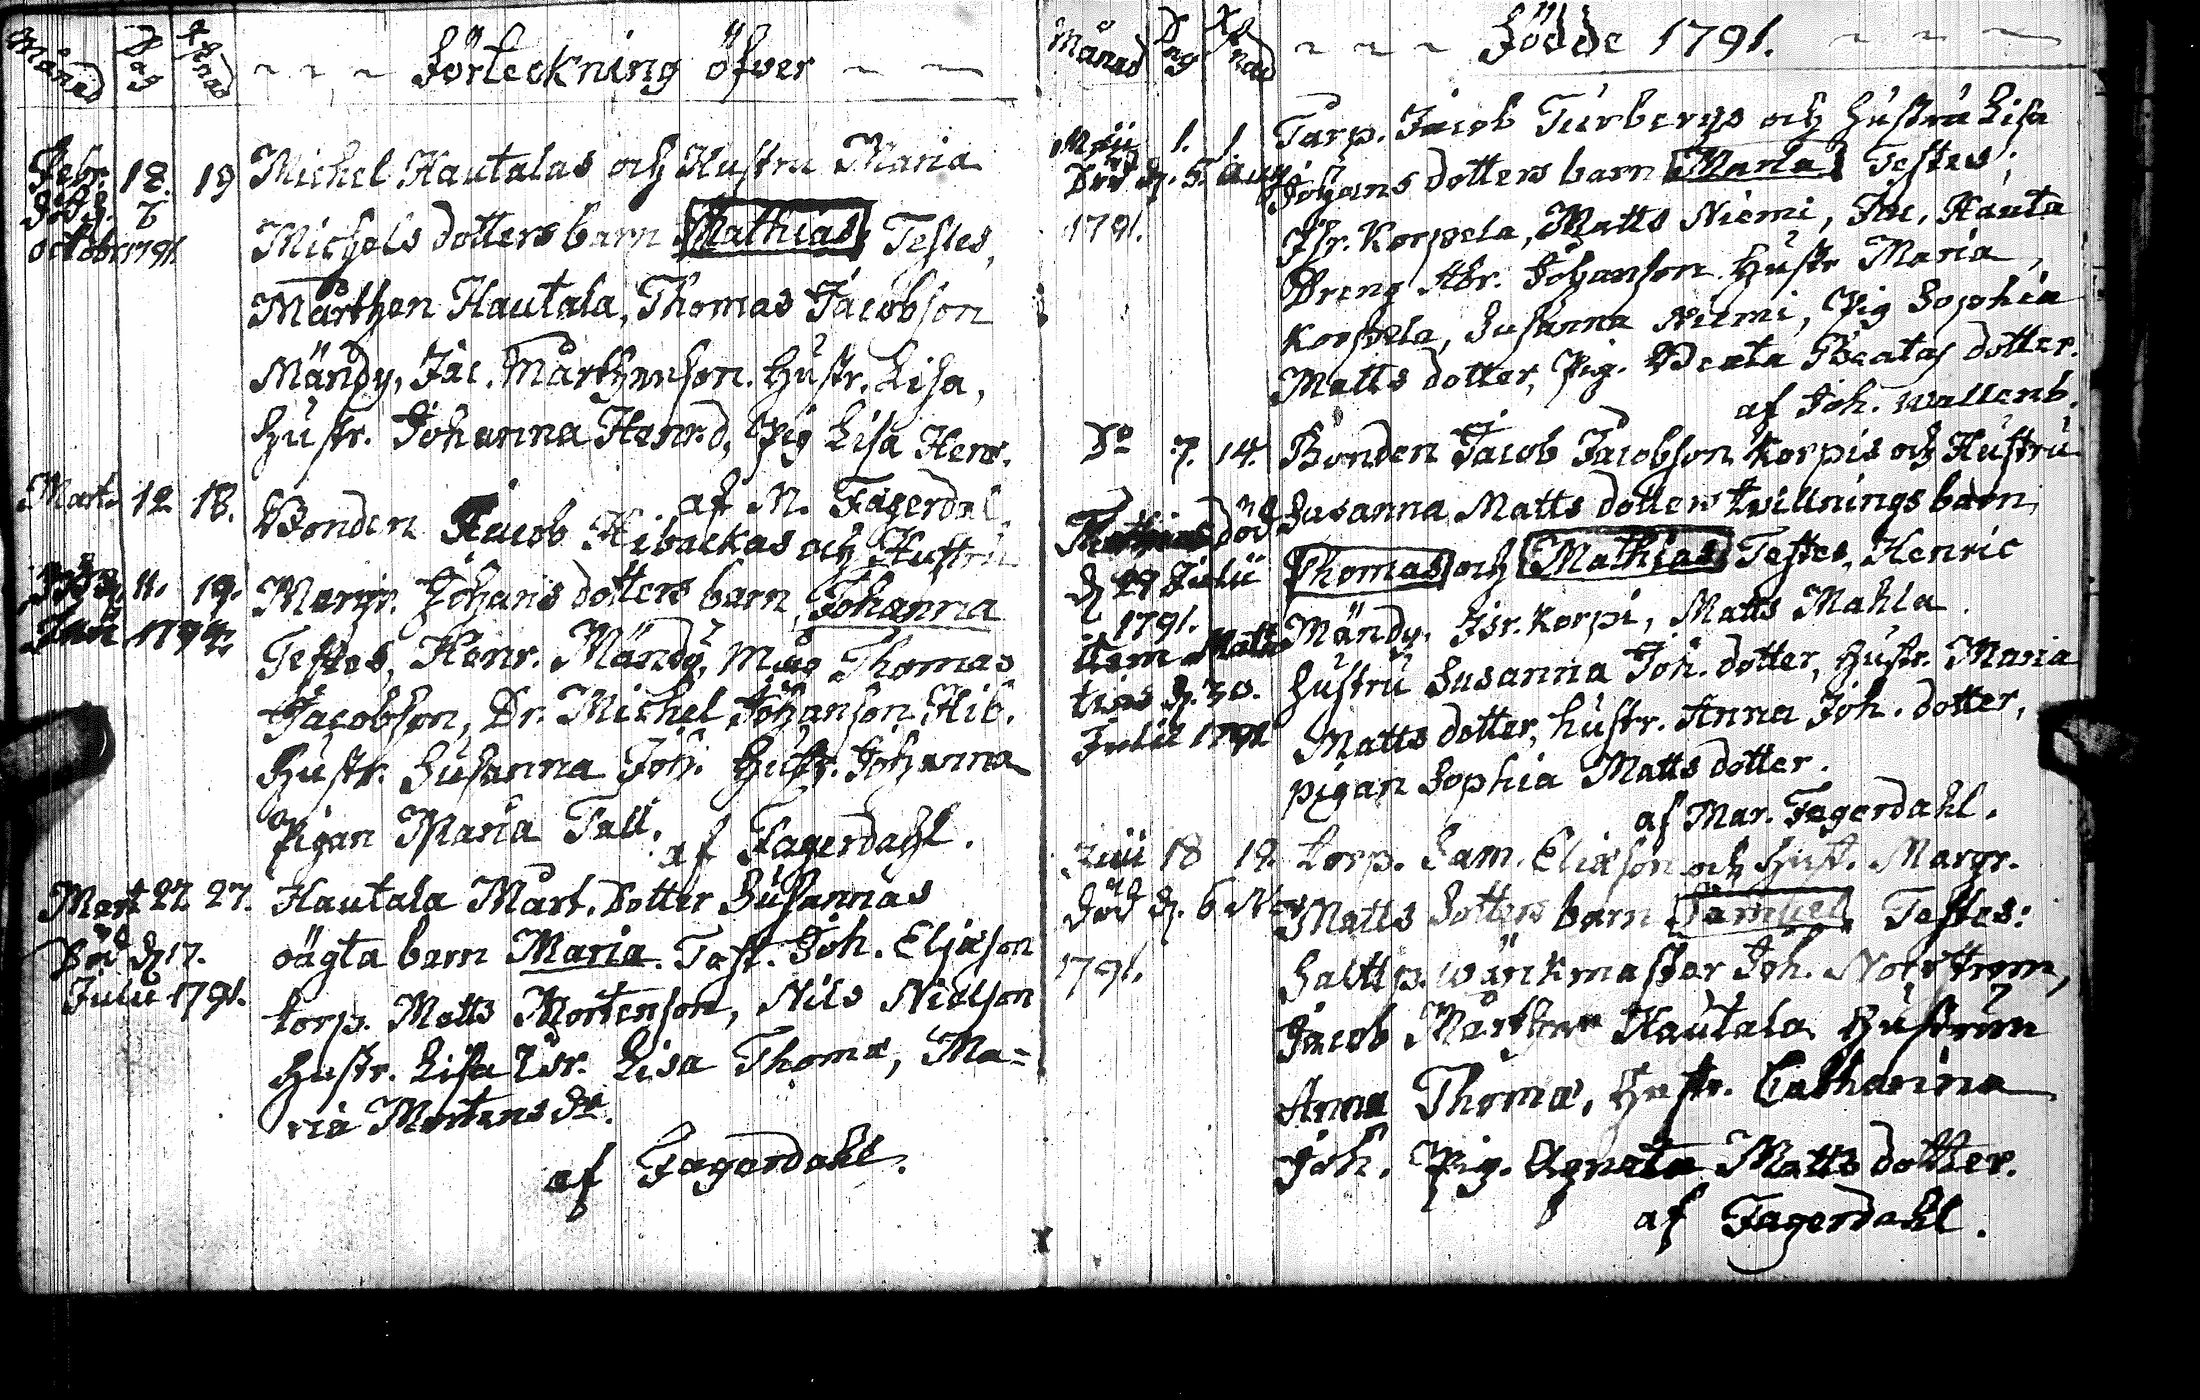 Månad Dag Xstnad
Förteckning öfver
Febr. 18. 19 Michel Hautalas och Hustru Maria
Död d. 6 October 1791
Michels dotters barn Mathias Testes,
Mårthen Hautala, Thomas Jacobson
Mändy, Jac. Mårthenson. Hustr. Lisa,
Hustr. Johanna Henr. d. Pig Lisa Henr.
af M. Fagerdal.
Mart. 12 18. Bonden Jacob Hibackas och Hustru
Margr. Johans dotters barn, Johanna
Död d. 11. 19.
1794.
Testes, Henr. Mändy, Thomas
Jacobson, Dr. Michel Johanson Hib.
Hustr. Susanna Joh. Hustr. Johanna
Pigan Maria Tall.
af Fagerdahl.
Mart 22 27. Hautala Mårt. Dotter Susannas
Död d. 17.
Julii 1791.
oägta barn Maria. Test. Joh. Eliæson
torp. Matts Mortenson, Nils Nielson
Hustr. Lisa Isr. Lisa Thomæ, Ma=
ria Mortens dr.
af Fagerdahl.
Månad Dag Xstnad
Födde 1791.
Maii 1. 1. Tarp. Jacob Turbergs och Hustru Lisa
Död d. 5. Aug.
1791.
Johans dotters barn Maria Testes;
Isr. Korpela, Matts Niemi, Jac. Hauta
Dreng Abr. Johanson Hustr Maria,
Korpela, Susanna Niemi, Pig Sophia
Matts dotter, Pig. Beata Beatas dotter.
af Joh. Wallenb.
Do 7. 14. Bonden Jacob Jacobson Korpis och Hustru
Susanna Matts dotters tvillnings barn,
död
d. 29 Julii
1791.
item Mat
tias d. 30.
Julii 1791
Thomas och Mathias Testes, Henric
Mändy, Isr. Korpi, Matts Mahla.
Hustru Susanna Joh. dotter, Hustr. Maria
Matts dotter, hustr. Anna Joh. dotter,
pigan Sophia Matts dotter.
af Mar. Fagerdahl.
18 19. torp. Sam. Eliæson och Hust. Margr.
Död d. 6 Nov
1791.
Matts dotters barn Samuel, Testes:
Saltp. wärkmaster Joh. Norström,
Jacob Mårthen Hautala Hustrun
Anna Thomæ, Hustr. Catharina
Joh. Pig. Agneta Matts dotter.
af Fagerdahl.